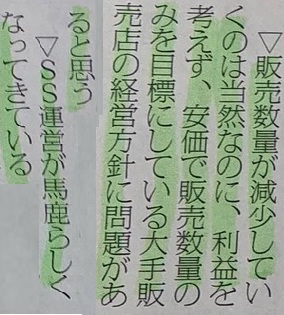 ▽販売数量が減少してい
くのは当然なのに、利益を
考えず、安価で販売数量の
みを目標にしている大手販
売店の経営方針に問題があ
ると思う
▽SS運営が馬鹿らしく
なってきている